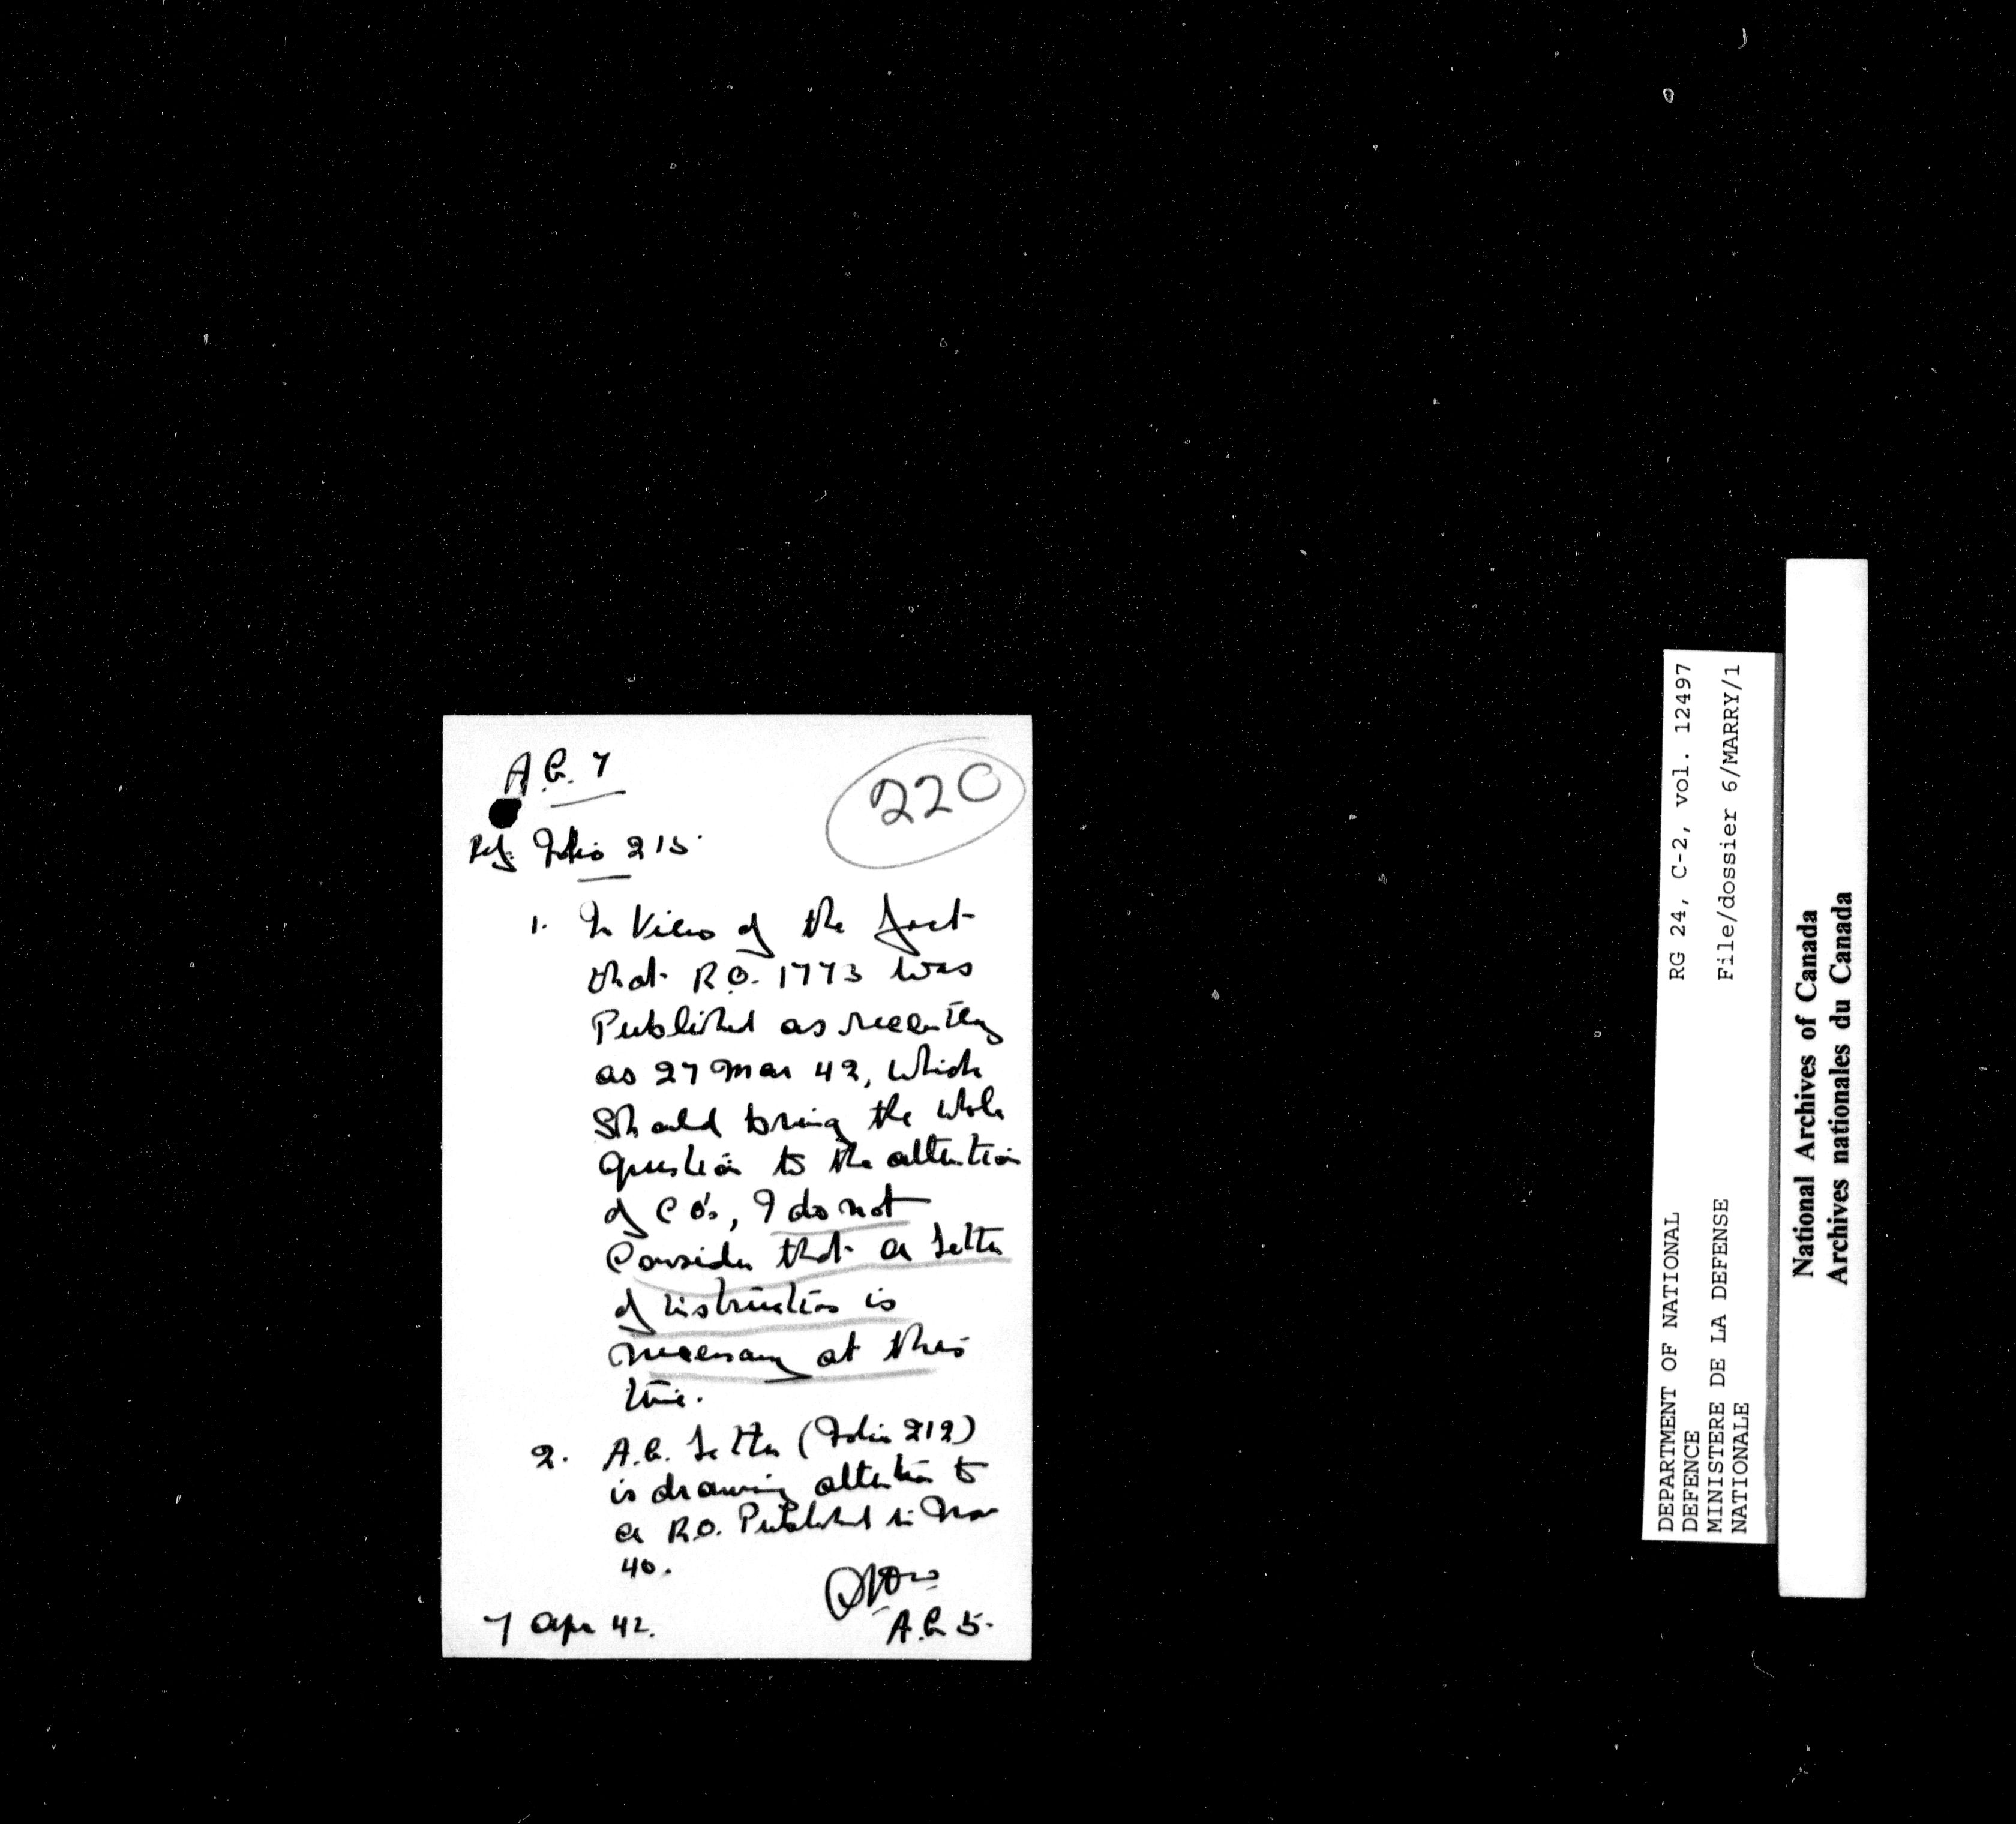 A.G. 7
220
Ref. Folio 215.
1. In View of the fact
that R.O. 1773 was
Published as recently
as 27 Mar 42, which
Should bring the whole
question to the attention
of C.O's, I do not
Consider that a letter
of instruction is
necessary at this
time.
2. A.G. Letter (Folio 212)
is drawing attention to
a R.O. Published in
40.
A.G. 5.
7 Apr 42.
RG 24, C-2, vol. 12497
File/dossier 6/MARRY/1
DEPARTMENT OF NATIONAL
DEFENCE
MINISTERE DE LA DEFENSE
NATIONALE
National Archives of Canada
Archives nationales du Canada